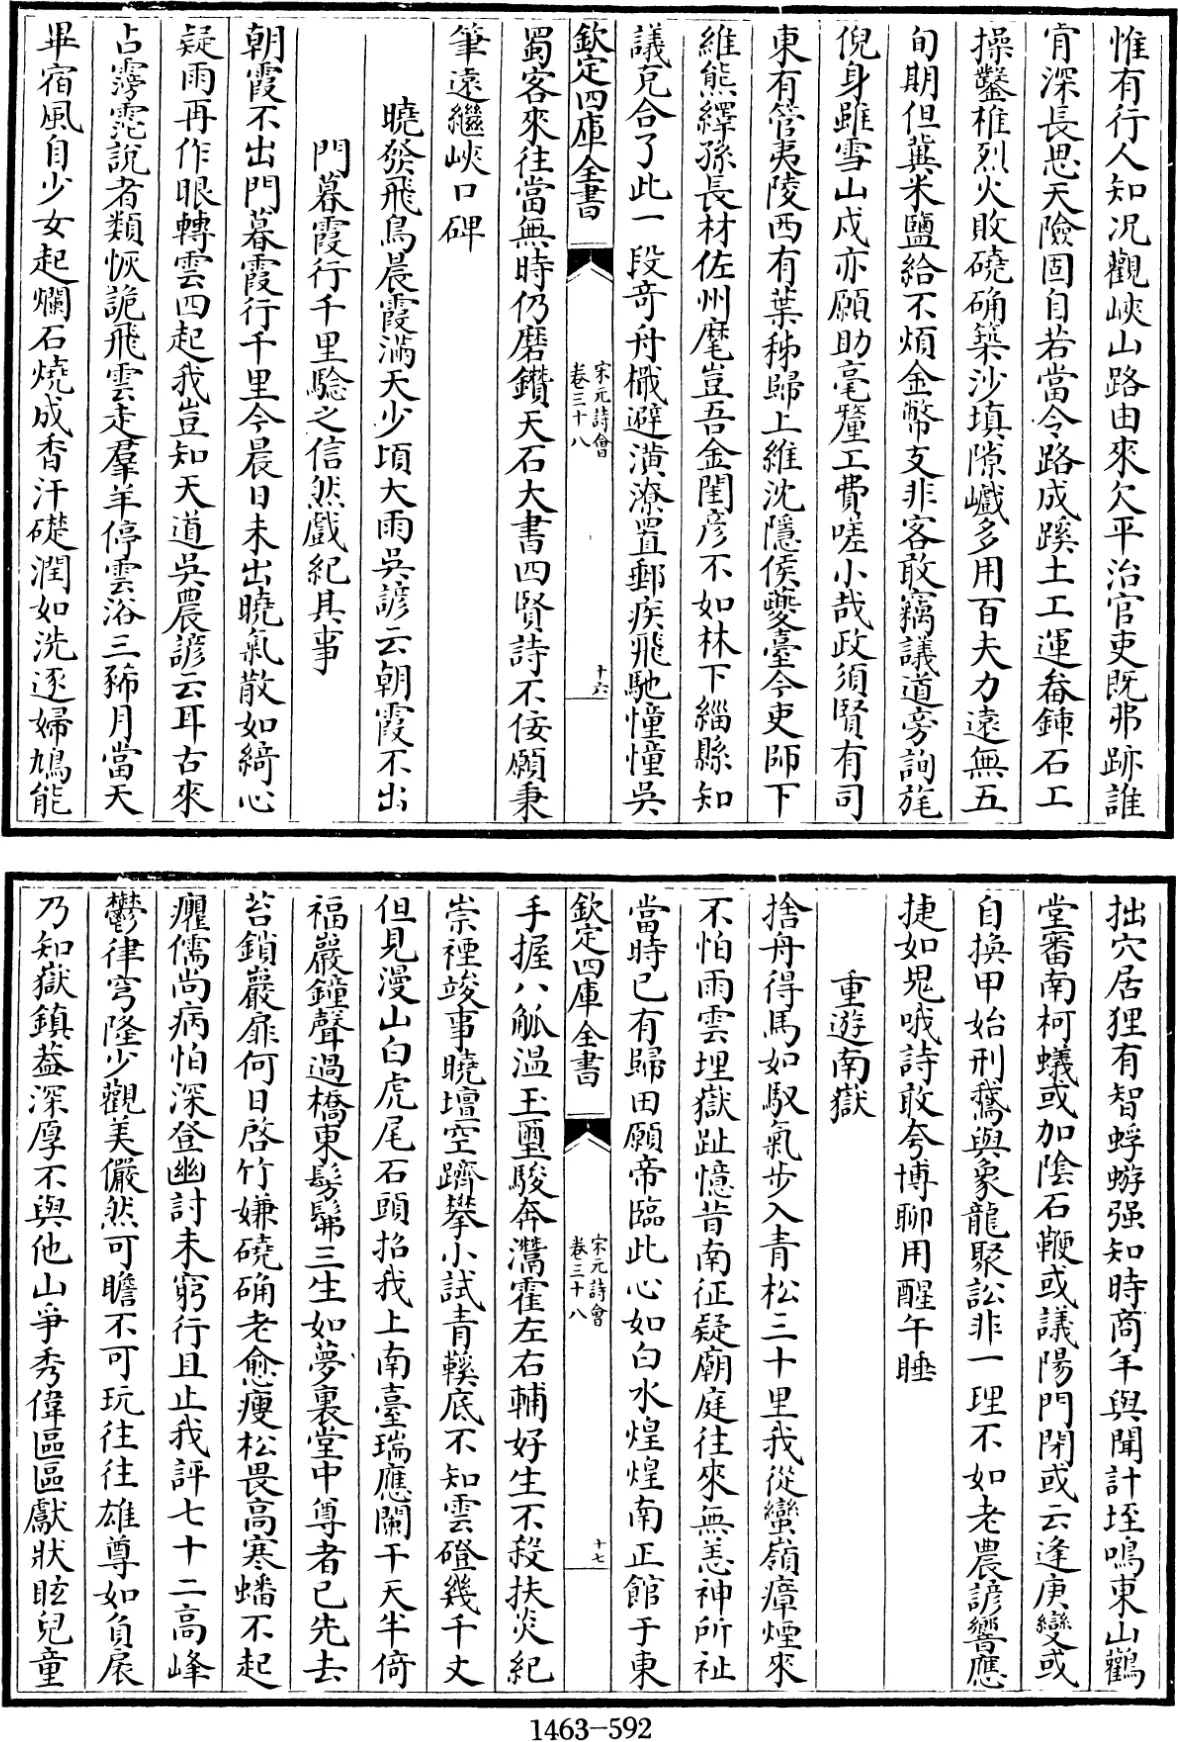 惟有行人知况觀峽山路由來欠平治官吏既弗跡誰
肯深長思天險固自若當令路成蹊土工運畚鍤石工
操鑿椎烈火敗磽确築沙填隙巇多用百夫力遠無五
旬期但冀米鹽給不煩金幣支非客敢竊議道旁詢旄
倪身雖雪山戍亦願助毫釐工費嗟小哉政須賢有司
東有管夷陵西有葉秭歸上維沈隱侯夔臺今吏師下
維熊繹孫長材佐州麾豈吾金閨彥不如林下緇縣知
議克合了此一段奇舟檝避潢潦置郵疾飛馳憧憧吳
欽定四庫全書
宋元詩會
卷三十八
十六
蜀客來往當無時仍磨鑽天石大書四賢詩不佞願秉
筆遠繼峽口碑
曉發飛鳥晨霞滿天少頃大雨吳諺云朝霞不出
門暮霞行千里驗之信然戲紀其事
朝霞不出門暮霞行千里今晨日未出曉氣散如綺心
疑雨再作眼轉雲四起我豈知天道吳農諺云耳古來
占滂霓說者類恢詭飛雲走羣羊停雲浴三豨月當天
畢宿風自少女起爛石燒成香汗礎潤如洗逐婦鳩能
拙穴居狸有智蜉蝣强知時商羊與聞計垤鳴東山鸛
堂審南柯蟻或加陰石鞭或議陽門閉或云逢庚變或
自換甲始刑鵞與象龍聚訟非一理不如老農諺響應
捷如鬼哦詩敢夸博聊用醒午睡
重遊南嶽
捨舟得馬如馭氣步入青松三十里我從蠻嶺瘴煙來
不怕雨雲埋嶽趾憶昔南征疑廟庭往來無恙神所祉
當時已有歸田願帝臨此心如白水煌煌南正館于東
欽定四庫全書
宋元詩會
卷三十八
十七
手握八觚温玉璽駿奔灊霍左右輔好生不殺扶炎紀
崇禋竣事曉壇空躋攀小試青鞵底不知雲磴幾千丈
但見漫山白虎尾石頭招我上南臺瑞應闌干天半倚
福嚴鐘聲過橋東髣髴三生如夢裏堂中尊者已先去
苔鎖巖扉何日啓竹嫌磽确老愈瘦松畏高寒蟠不起
癯儒尚病怕深登幽討未窮行且止我評七十二高峰
鬱律穹隆少觀美儼然可瞻不可玩往往雄尊如負扆
乃知嶽鎮葢深厚不與他山爭秀偉區區獻狀眩兒童
1463-592